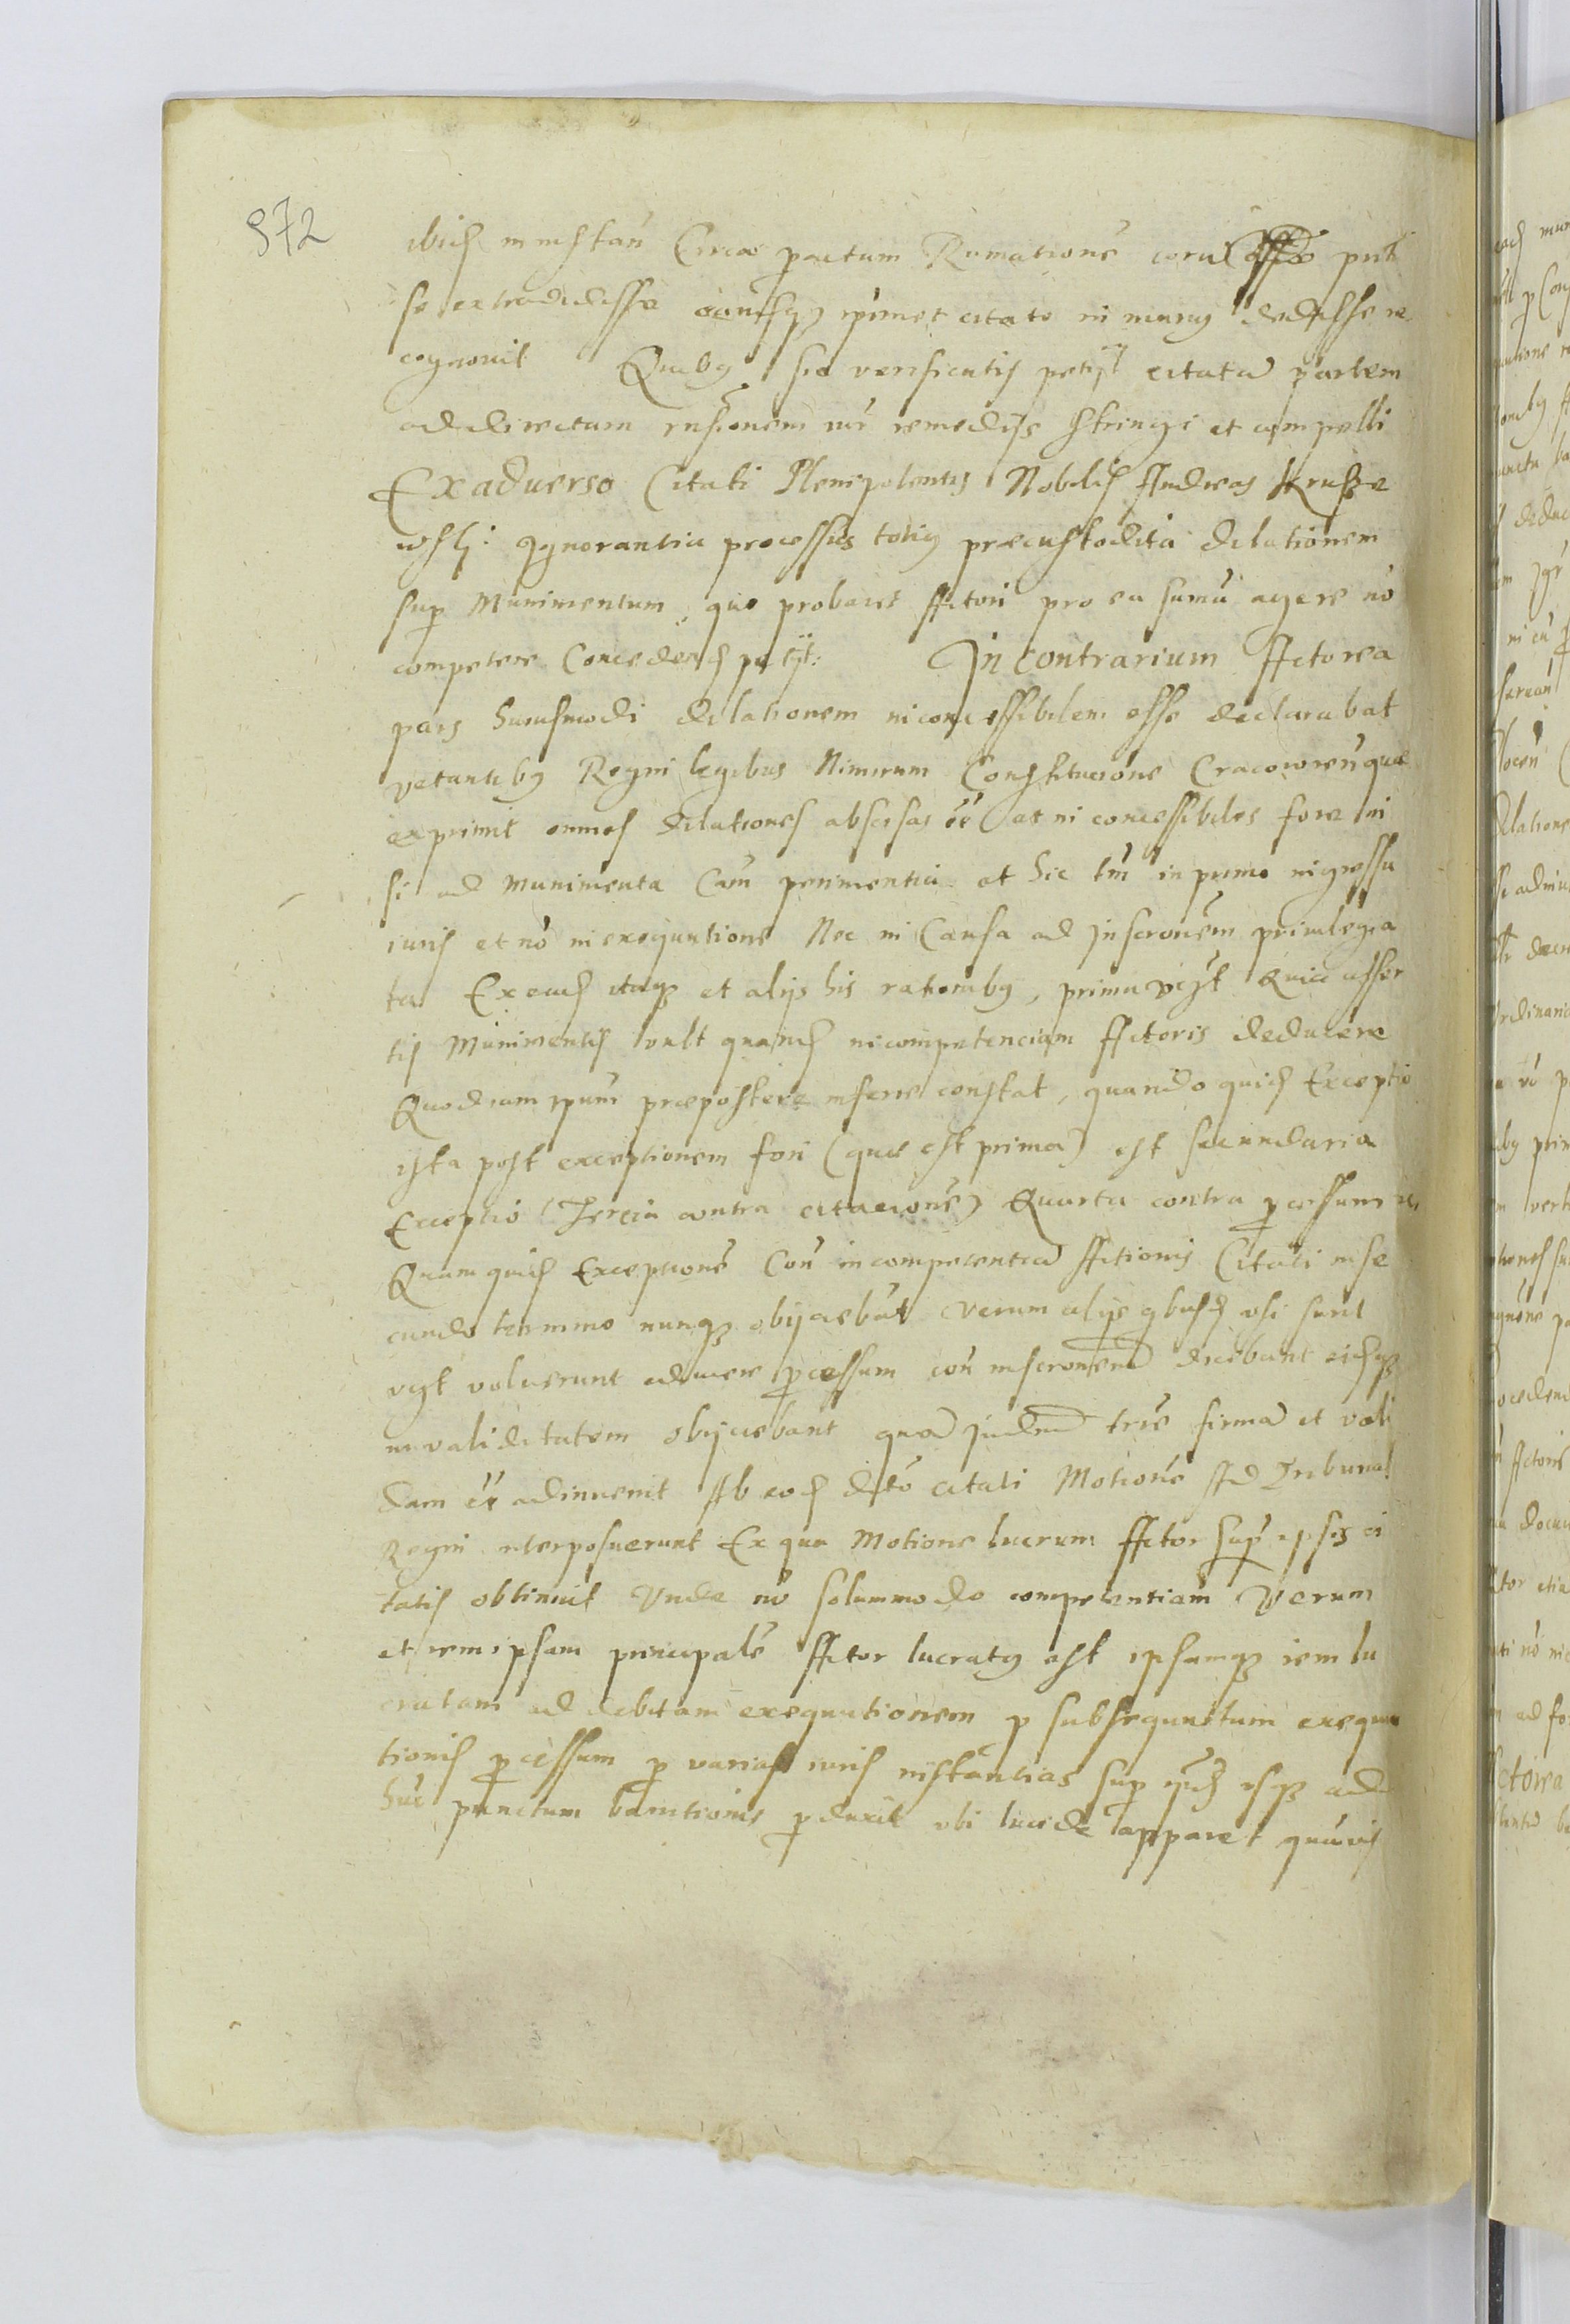 972
se extradidisse citato in manus dedisse re
cognovit Quibus sic verificatis petijt citatam partem
ad directum iur remedijs stringi et compelli
Ex adverso Citati Plenipotentis Nobilis Andreas Krusze
wski Ignorantia processus totius præcustodita dilationem
sup Munimentum quo probaret Actori pro ea summa agere nō
competere Concedend petijt: In contrarium Actorea
pars huiusmodi dilationem inconcessibilem esse declarabat
vetantibus Regni legibus Nimirum Constitucione Cracovien que
exprimit omnes dilationes abscisas eē et inconcessibiles fore ni
si ad munimenta Cam perimentia et hic tm in primo ingressu
iuris et nō in exequutione Nec in Causa ad inscronem privilegia
ta Ex eius itaqz et alijs his rationibus, prima vt Quia asser
tis Munimentis vult quand incompetenciam Actoris deducere
Quod iam ipum præpostere inferre constat, quando quid Exceptio
ista post exceptionem fori (que est prima) est secundaria
Exceptio (Tercia contra citacionē) Quarta contra pcessum
Quam quid Exceptionē Con incompetentiā Actionis Citati in se
cundo termino nunqz obijciebāt verum alijs qbusd usi sunt
vt voluerunt pcessum con inscronem dicebant eidqz
invaliditatem obijciebant quā Judm trīe firmā et vali
dam eē adinvenit Ab eod dcto citati Motionē Ad Tribunal
Regni interposuerunt Ex qua Motione lucrum Actor sup ipsis ci
tatis obtinuit Unde nō solummodo competentiam Verum
et rem ipsam principalē Actor lucratus est ipsamqz rem lu
cratam ad debitam exequutionem p subsequutum exequu
tionis pcessum p varias iuris instantias sup usqz ad
huc punctum banitionis pduxit ubi lucide apparet quāvis